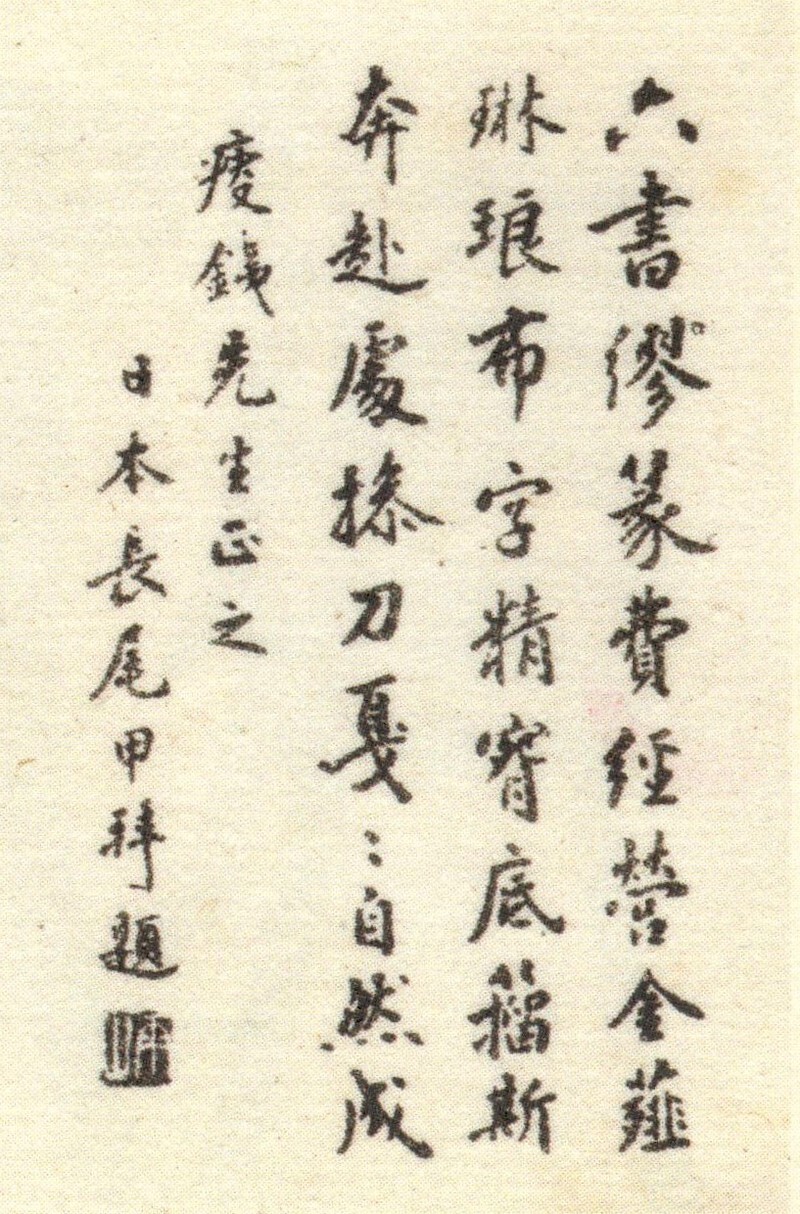 六書繆篆費經營金薤
琳琅布字精腕底籀斯
奔赴處操刀戛〻自然成
瘦銕先生正之
日本長尾甲拜題